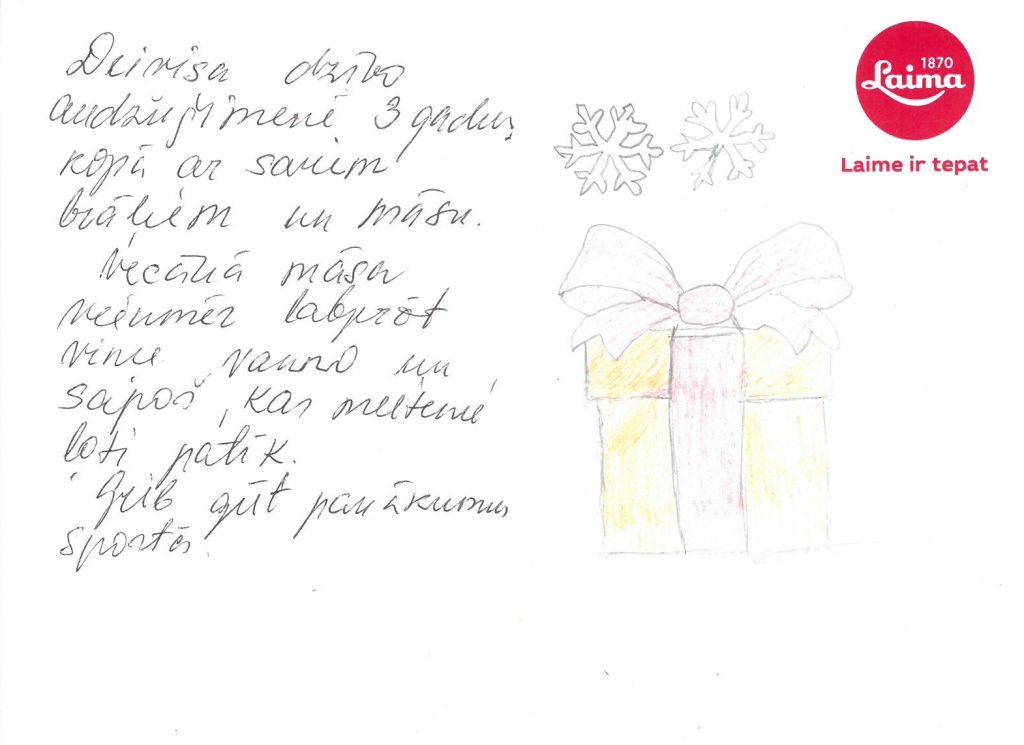 Deivisa dzīvo
audžuģimenē 3 gadus,
kopā ar saviem
brāļiem un māsu.
Vecākā māsa
vienmēr labprāt
viņu vanno un
sapoš, kas meitenei
ļoti patīk.
Grib gūt panākumus
sportā.
1870
Laima
Laime ir tepat